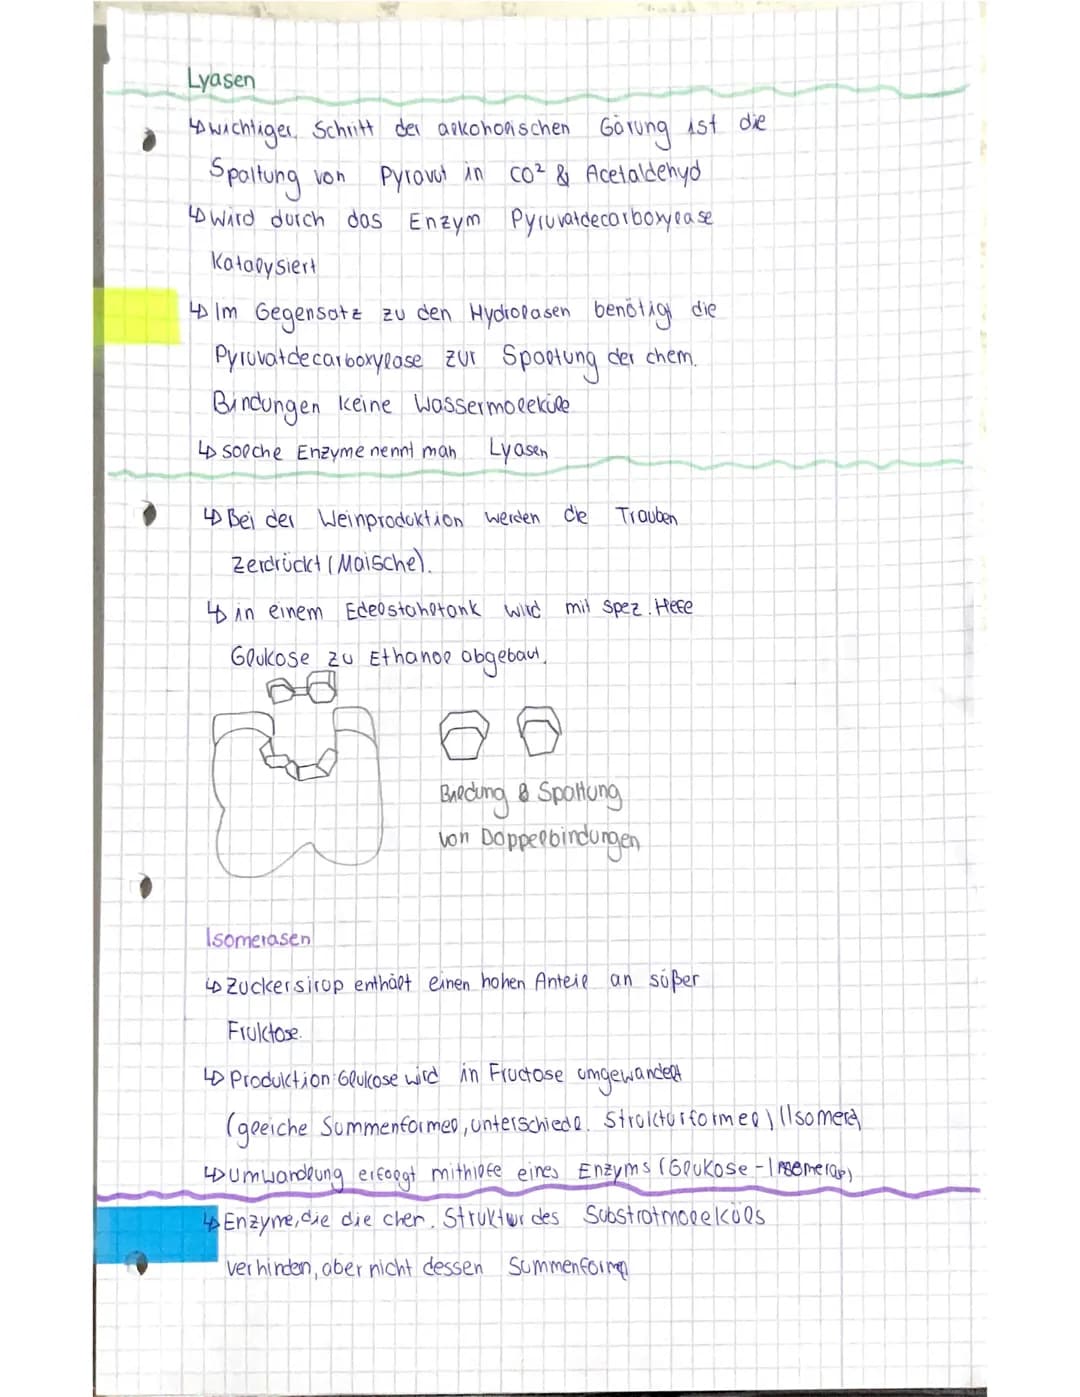 Lyasen
↳ wichtiger Schritt der alkoholischen Gärung ist die
Spaltung von Pyrovat in CO² & Acetaldehyd
↳ wird durch das Enzym Pyruvatdecarboxylase
Katalysiert
↳ Im Gegensatz zu den Hydrolasen benötigt die
Pyruvatdecarboxylase zur Spaltung der chem.
Bindungen keine Wassermoleküle
↳ solche Enzyme nennt man Lyasen
↳ Bei der Weinproduktion werden die Trauben
Zerdrückt (Maische).
↳ in einem Edelstahltank wird mit spez. Hefe
Glukose zu Ethanol abgebaut.
Bildung & Spaltung
von Doppelbindungen
Isomerasen
↳ Zuckersirup enthält einen hohen Anteil an süßer
Fruktose.
↳ Produktion: Glukose wird in Fructose umgewandelt
(gleiche Summenformel, unterschiedl. Strukturformel) (Isomere)
↳ Umwandlung erfolgt mithilfe eines Enzyms (Glukose-Isomerase)
↳ Enzyme, die die chem. Struktur des Substratmoleküls
verhinden, aber nicht dessen Summenformel